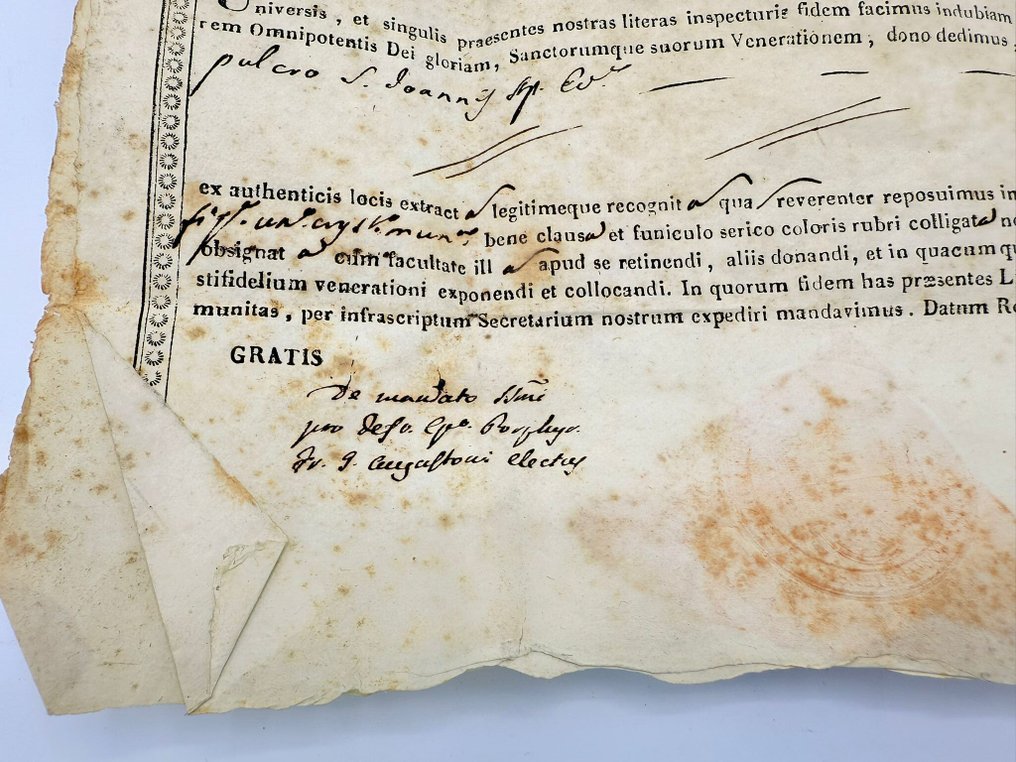 Universis, et singulis praesentes nostras literas inspecturis fidem facimus indubiam
rem Omnipotentis Dei gloriam, Sanctorumque suorum Venerationem, dono dedimus,
S. Joannis Ap. Ev.
ex authenticis locis extract a legitimeque recognit a qua reverenter reposuimus in
bene clausa et funiculo serico coloris rubri colligata
obsignat a cum facultate ill a apud se retinendi, aliis donandi, et in quacumqu
stifidelium venerationi exponendi et collocandi. In quorum fidem has præsentes
munitas, per infrascriptum Secretarium nostrum expediri mandavimus. Datum
GRATIS
De mandato SSmi
Epo. Porphyr.
Fr. electus